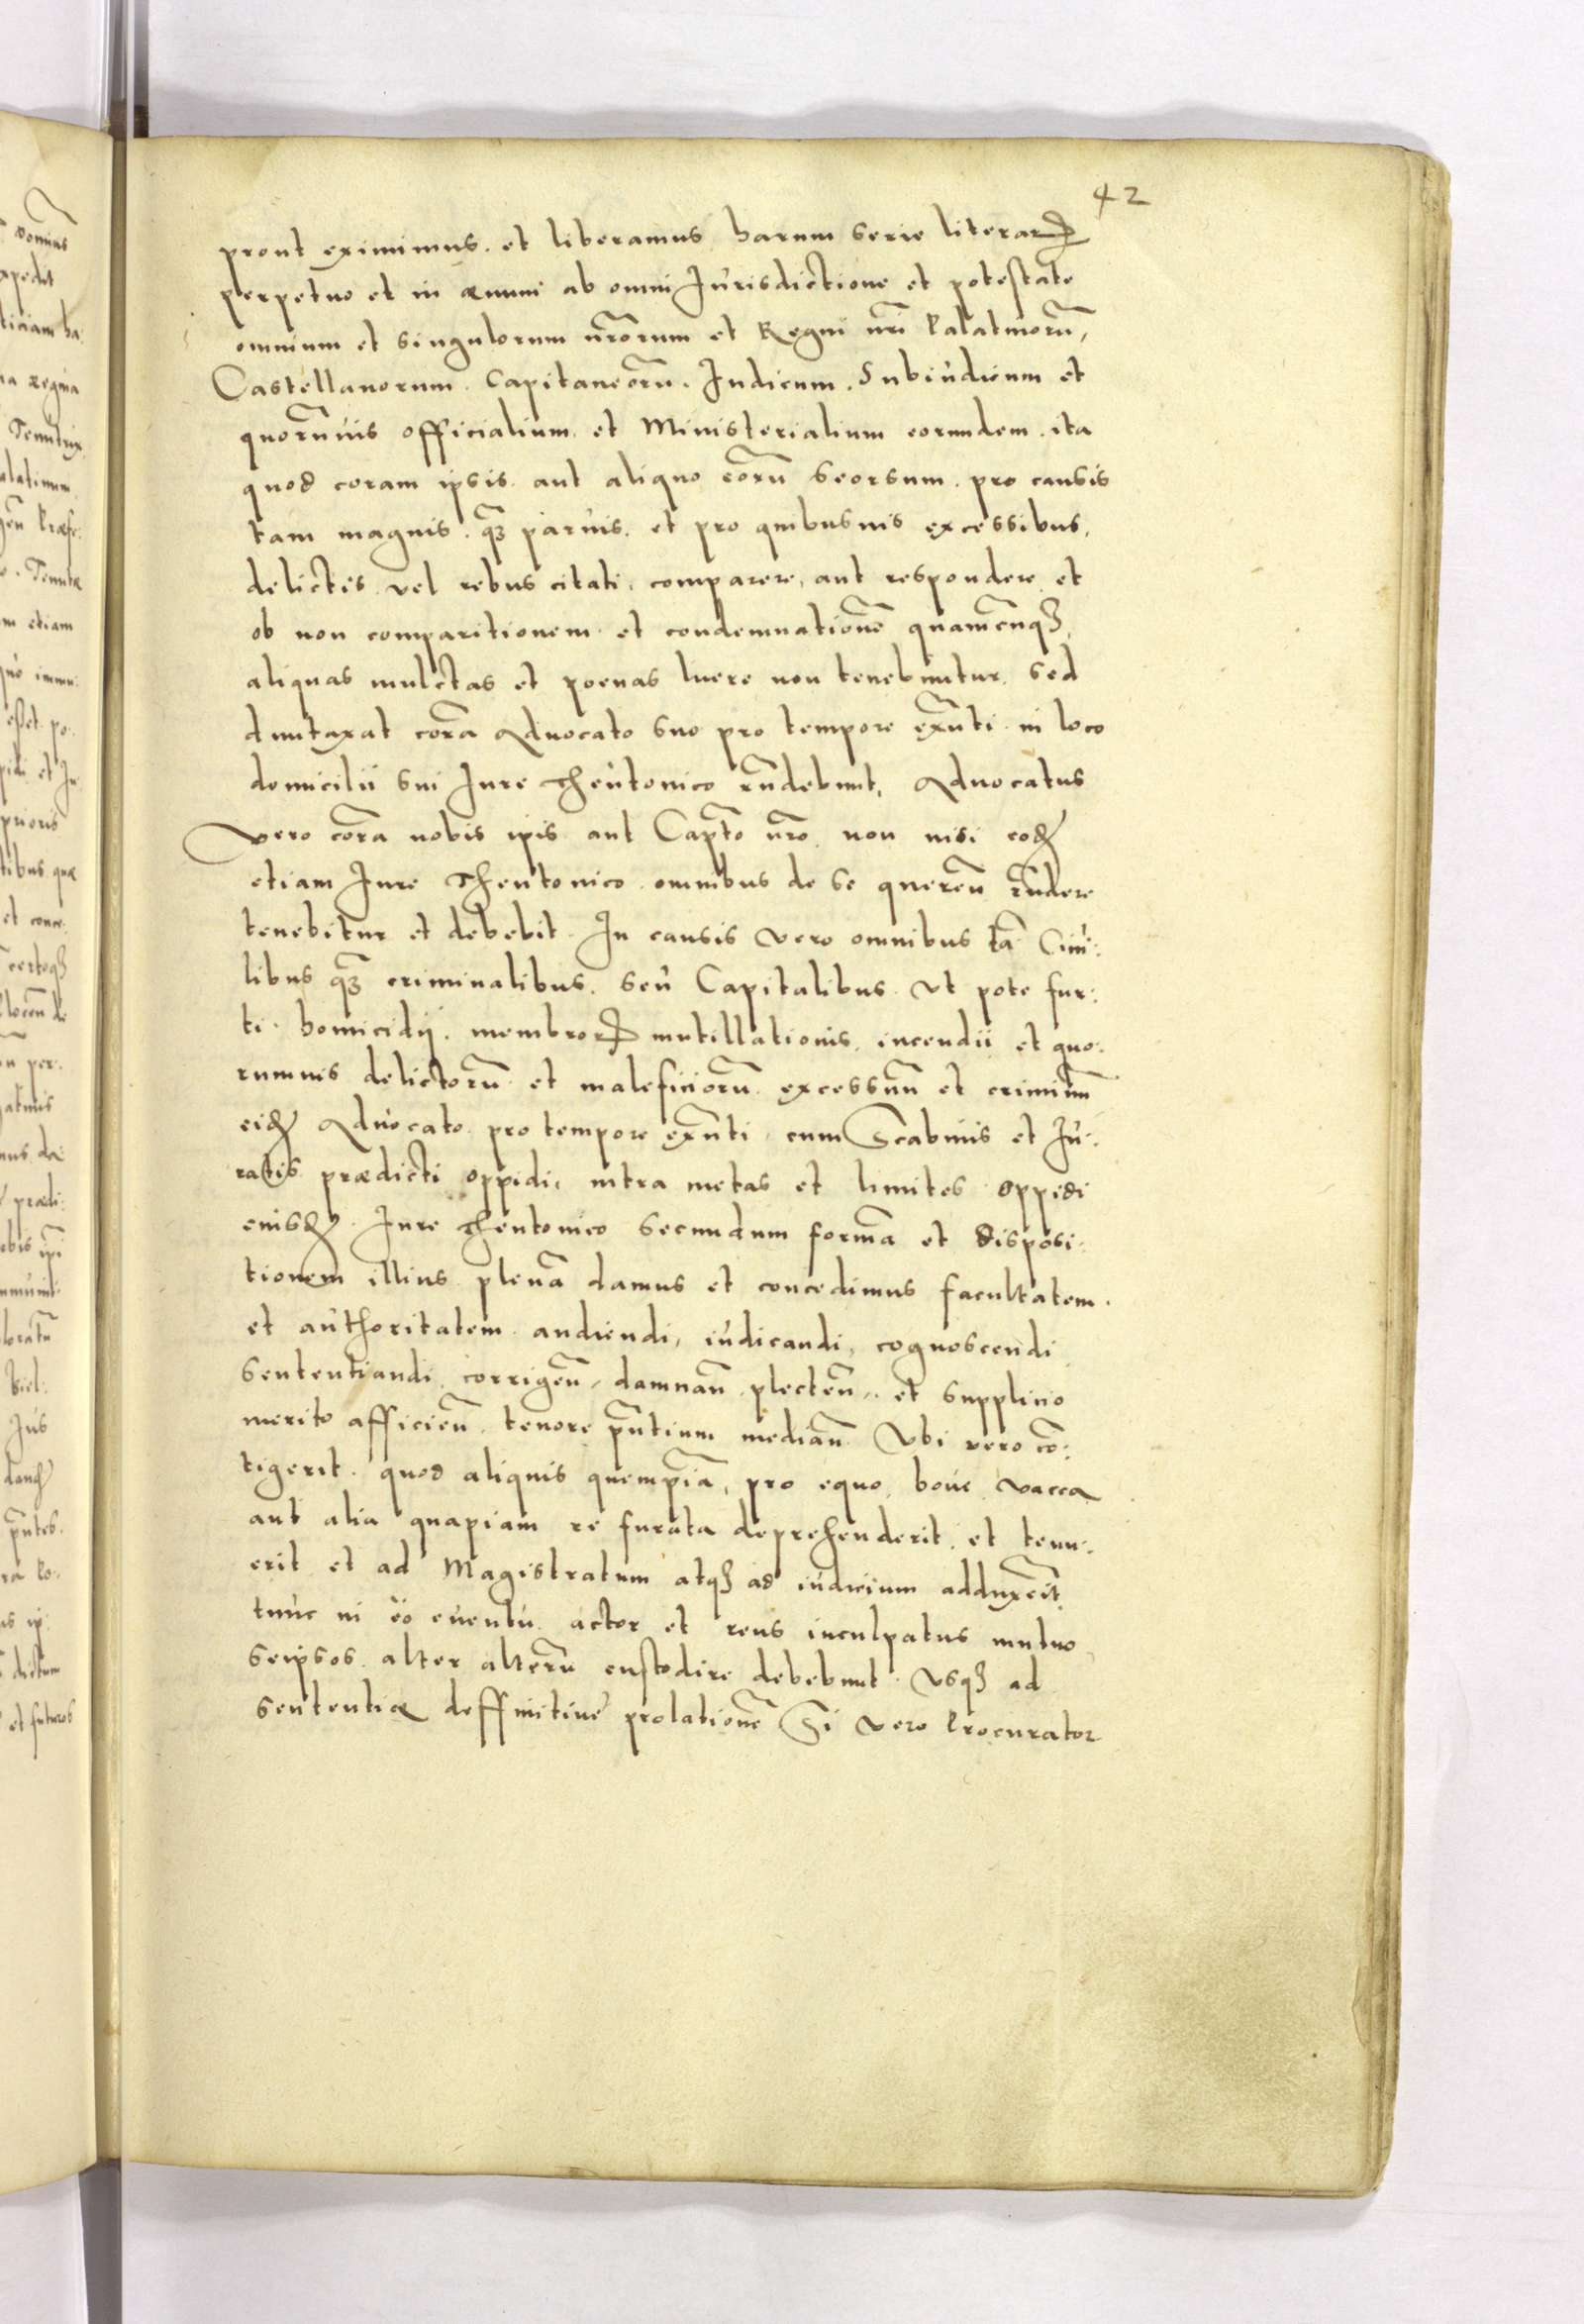 42
prout eximimus. et liberamus harum serie literarꝝ
perpetuo et in æuum ab omni Iurisdictione et potestate
omnium et singulorum nr̃orum et Regni nr̃i Palatinorũ,
Castellanorum. Capitaneorũ. Iudicum. Subiudicum et
quorũuis officialium. et Ministerialium eorundem. ita
quod coram ipsis. aut aliquo eorũ seorsum. pro causis
tam magnis. qꝫ paruis. et pro quibusuis excessibus,
delictis vel rebus citati, comparere, aut respondere et
ob non comparitionem. et condemnationẽ quamcũqꝫ,
aliquas mulctas et poenas luere non tenebuntur. sed
duntaxat corã Aduocato suo pro tempore exñti. in loco
domicilii sui Iure Theutonico rñdebunt, Aduocatus
vero corã nobis ipis aut Capto nr̃o. non nisi eodꝫ
etiam Iure Theutonico omnibus de se querẽn rñdere
tenebitur et debebit. In causis vero omnibus tã Ciui:
libus qꝫ criminalibus. seu Capitalibus. Vt pote fur:
ti. homicidij. membrorꝝ mutillationis, incendii et quo:
rumuis delictorũ. et maleficiorũ. excessuũ et criminũ
eidꝫ Aduocato. pro tempore exñti. cum Scabinis et Iu:
ratis prædicti oppidi, intra metas et limites oppidi
eiusdꝫ. Iure Theutonico secundum formã et disposi:
tionem illius plenã damus et concedimus facultatem.
et authoritatem. audiendi, iudicandi, cognoscendi
sententiandi, corrigeñ, damnañ, plecteñ,, et supplicio
merito afficieñ. tenore p̃ntium mediañ. Vbi vero cõ:
tigerit. quod aliquis quempiã, pro equo, boue, vacca
aut alia quapiam re furata deprehenderit. et tenu:
erit et ad Magistratum atqꝫ ad iudicium adduxerĩt.
tunc in eo euentu. actor et reus inculpatus mutuo
seipsos. alter alterũ custodire debebunt. Vsqꝫ ad
sententiæ deffinitiue prolationẽ. Si vero Procurator